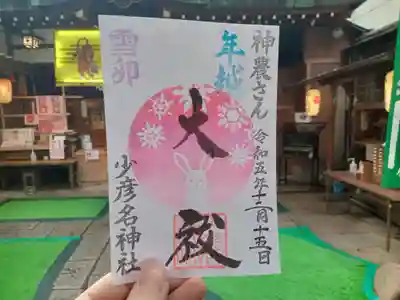 神農さん
令和五年十二月十五日
年越
大祓
雪卯
少彦名神社